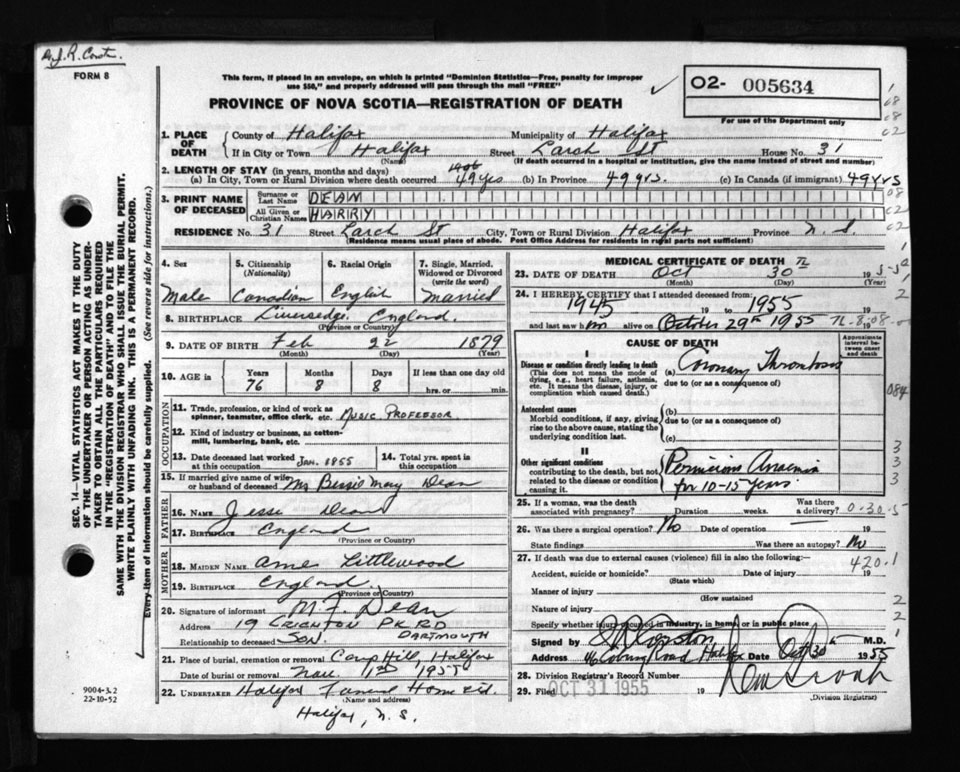 FORM 8
This form, if placed in an envelope, on which is printed "Dominion Statistics—Free, penalty for improper
use $50," and properly addressed will pass through the mail "FREE"
PROVINCE OF NOVA SCOTIA—REGISTRATION OF DEATH
02- 005634
For use of the Department only
1. PLACE OF DEATH County of Halifax Municipality of Halifax
If in City or Town Halifax Street Larch St House No. 31
(Name) (If death occurred in a hospital or institution, give the name instead of street and number)
2. LENGTH OF STAY (in years, months and days) 1906
(a) In City, Town or Rural Division where death occurred 49 yrs (b) In Province 49 yrs. (c) In Canada (if immigrant) 49 yrs
3. PRINT NAME OF DECEASED Surname or Last Name DEAN
All Given or Christian Names HARRY
RESIDENCE No. 31 Street Larch St City, Town or Rural Division Halifax Province N. S.
(Residence means usual place of abode. Post Office Address for residents in rural parts not sufficient)
4. Sex Male
5. Citizenship (Nationality) Canadian
6. Racial Origin English
7. Single, Married, Widowed or Divorced (write the word) Married
8. BIRTHPLACE Liversedge, England.
(Province or Country)
9. DATE OF BIRTH Feb 22 1879
(Month) (Day) (Year)
10. AGE in Years Months Days If less than one day
76 8 8 hrs. or min.
OCCUPATION
11. Trade, profession, or kind of work as spinner, teamster, office clerk, etc. MUSIC PROFESSOR
12. Kind of industry or business, as cotton-mill, lumbering, bank, etc.
13. Date deceased last worked at this occupation JAN. 1955
14. Total yrs. spent in this occupation
15. If married give name of wife or husband of deceased Mrs Bessie May Dean
FATHER
16. Name Jesse Dean
17. Birthplace England
(Province or Country)
MOTHER
18. MAIDEN NAME Littlewood
19. BIRTHPLACE England.
(Province or Country)
20. Signature of informant M. F. Dean
Address 19 CRICHTON PK RD DARTMOUTH
Relationship to deceased SON.
21. Place of burial, cremation or removal Camp Hill, Halifax
Date of burial or removal Nov. 1st 1955
22. UNDERTAKER Halifax Funeral Home Ltd.
(Name and address)
Halifax, N. S.
MEDICAL CERTIFICATE OF DEATH
23. DATE OF DEATH Oct 30 1955
(Month) (Day) (Year)
24. I HEREBY CERTIFY that I attended deceased from
1945 19 to 1955
and last saw him alive on October 29th 1955 19
CAUSE OF DEATH
Approximate interval between onset and death
I
Disease or condition directly leading to death (a) Coronary Thrombosis
(This does not mean the mode of dying, e.g., heart failure, asthenia, etc. It means the disease, injury, or complication which caused death.)
due to (or as a consequence of)
Antecedent causes
Morbid conditions, if any, giving rise to the above cause, stating the underlying condition last.
(b)
due to (or as a consequence of)
(c)
II
Other significant conditions contributing to the death, but not related to the disease or condition causing it.
Pernicious Anaemia
for 10-15 years.
25. If a woman, was the death associated with pregnancy? Duration weeks. Was there a delivery?
26. Was there a surgical operation? No Date of operation 19
State findings Was there an autopsy? No
27. If death was due to external causes (violence) fill in also the following:—
420.1
Accident, suicide or homicide? Date of injury 19
(State which)
Manner of injury
(How sustained
Nature of injury
Specify whether injury occurred in industry, in home, or in public place
Signed by M.D.
Address 46 Coburg Road Halifax Date Oct 30th 1955
28. Division Registrar's Record Number
29. Filed OCT 31 1955 19
(Division Registrar)
SEC. 14—VITAL STATISTICS ACT MAKES IT THE DUTY
OF THE UNDERTAKER OR PERSON ACTING AS UNDER-
TAKER TO OBTAIN ALL THE PARTICULARS REQUIRED
IN THE "REGISTRATION OF DEATH" AND TO FILE THE
SAME WITH THE DIVISION REGISTRAR WHO SHALL ISSUE THE BURIAL PERMIT.
WRITE PLAINLY WITH UNFADING INK. THIS IS A PERMANENT RECORD.
Every item of information should be carefully supplied. (See reverse side for instructions.)
9004-3.2
22-10-52